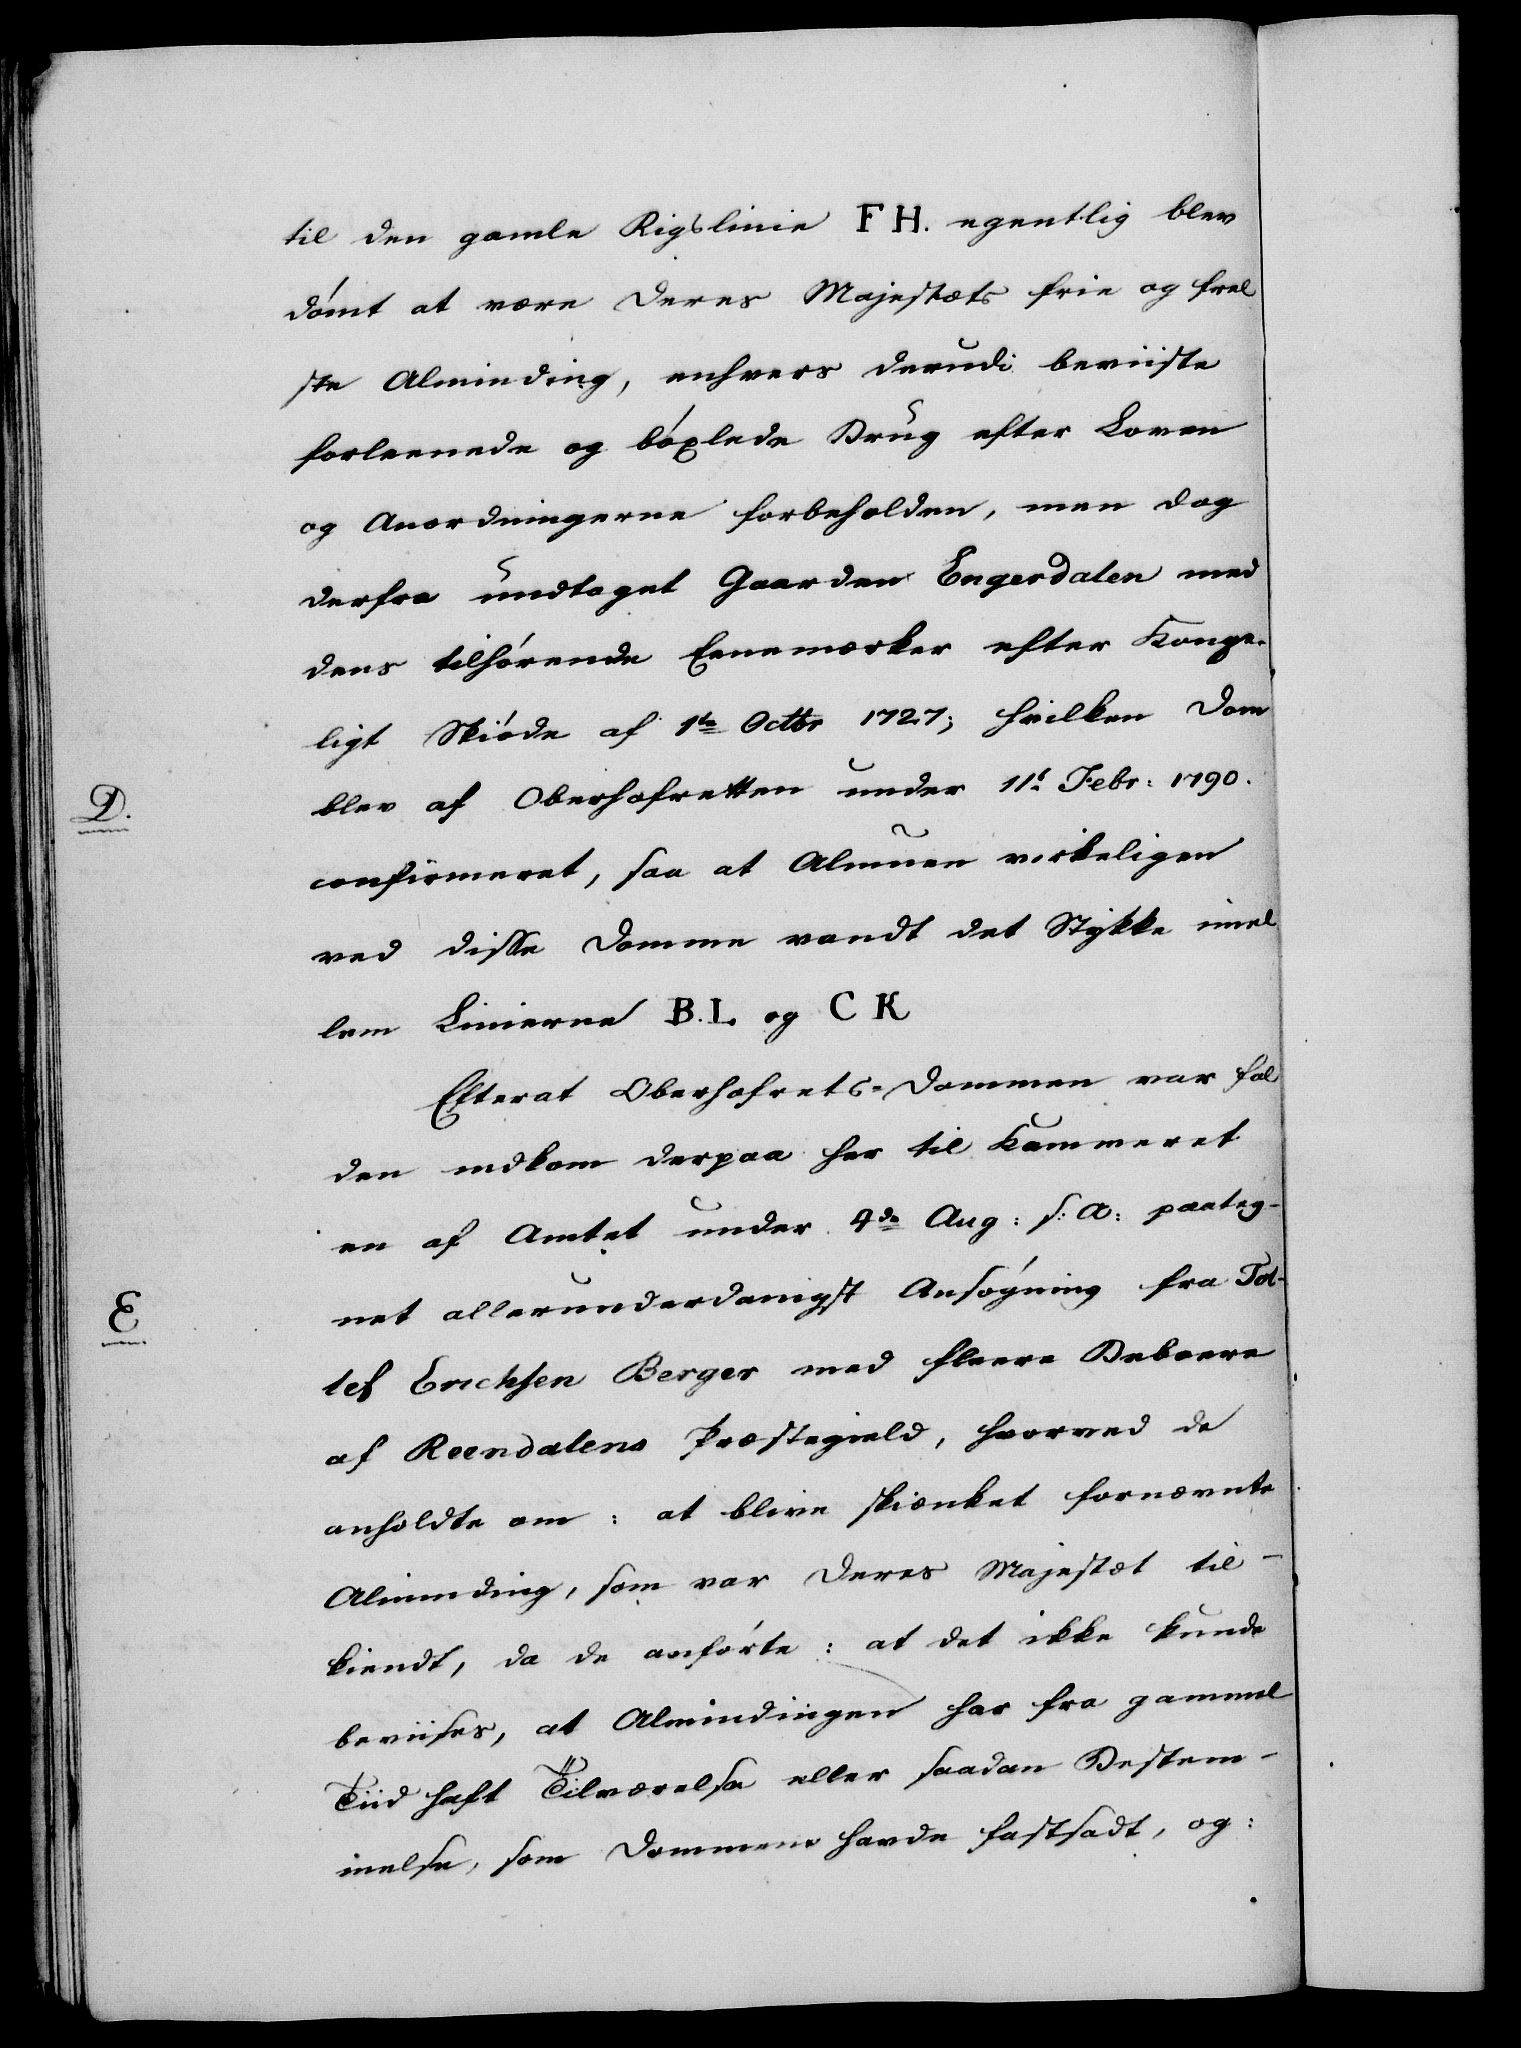 til den gamle Rigslinie F H. egentlig blev
dömt at være Deres Majestæts frie og frel
ste Alminding, enhvers derudi beviiste
forleenede og böxlede Brug efter Loven
og Anordningerne forbeholden, men dog
derfra undtaget Gaarden Engerdalen med
dens tilhörende Eenemærker efter Konge-
ligt Skiöde af 1te Octbr 1727; hvilken Dom
D.
blev af Oberhofretten under 11t Febr: 1790.
confirmeret, saa at Almuen virkeligen
ved disse Domme vandt det Stykke imel
lem Linierne B. I. og C K
Efterat Oberhofrets-Dommen var fal
den indkom derpaa her til Kammeret
en af Amtet under 4de Aug: s: A: paateg-
E
net allerunderdanigst Ansögning fra Tol-
lef Erichsen Berger med fleere Beboere
af Reendalens Præstegield, hvorved de
anholdte om: at blive skienket fornævnte
Alminding, som var Deres Majestæt til-
kiendt, da de anförte: at det ikke kunde
beviises, at Almindingen har fra gammel
Tiid haft Tilværelse eller saadan Bestem-
melse, som Dommene havde fastsadt, og: